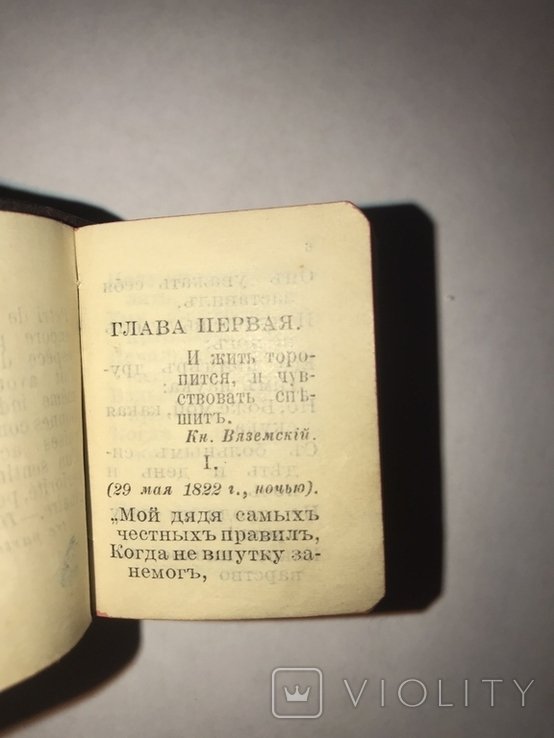 ГЛАВА ПЕРВАЯ.
И жить торо-
пится, и чув-
ствовать спѣ-
шитъ.
Кн. Вяземскій.
I.
(29 мая 1822 г., ночью).
„Мой дядя самыхъ
честныхъ правилъ,
Когда не вшутку за-
немогъ,
VIOLITY